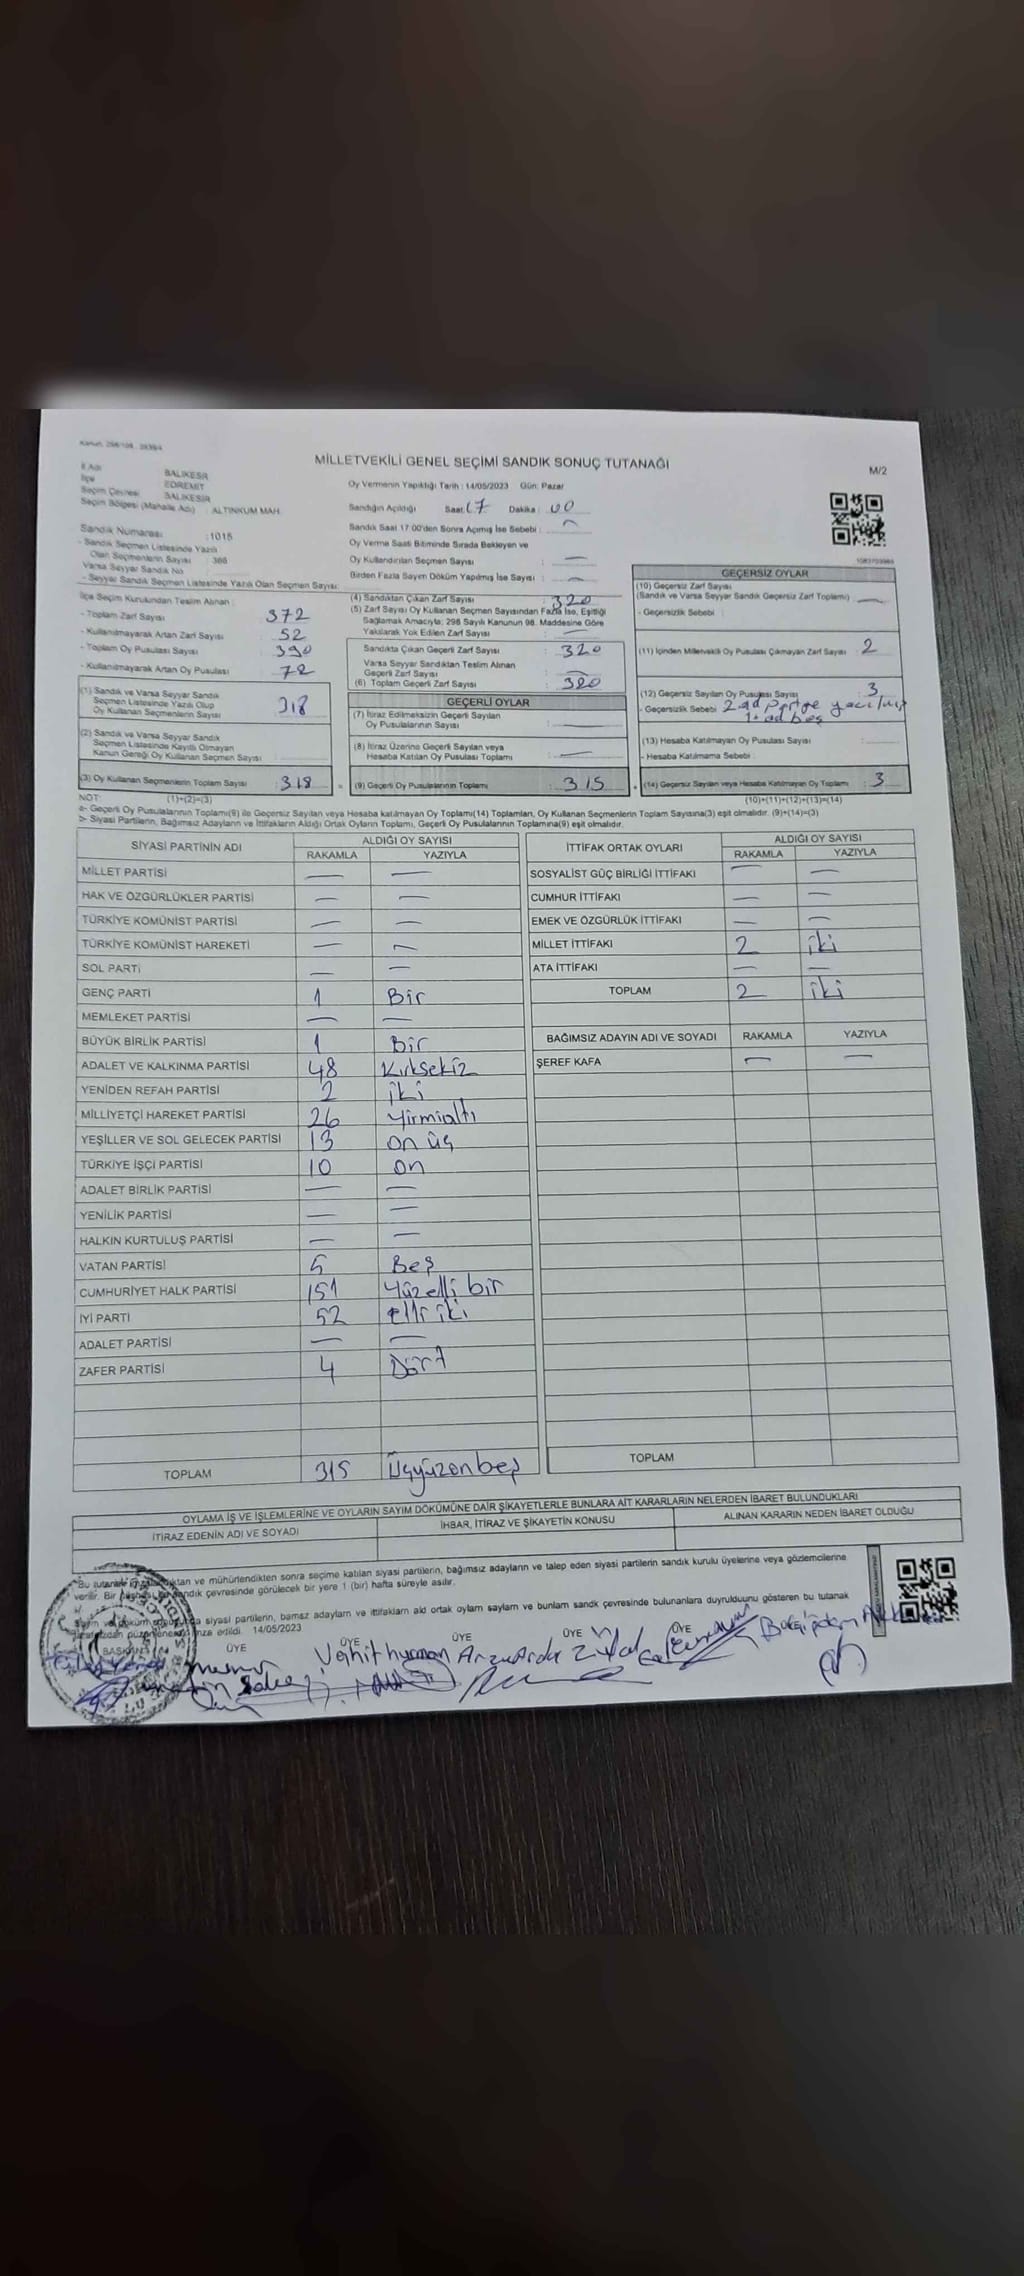 MİLLETVEKİLİ GENEL SEÇİMİ SANDIK SONUÇ TUTANAĞI
M/2
İl Adı BALIKESİR
İlçe EDREMİT
Seçim Çevresi BALIKESİR
Seçim Bölgesi (Mahalle Adı) : ALTINKUM MAH.
Oy Vermenin Yapıldığı Tarih : 14/05/2023 Gün: Pazar
Sandığın Açıldığı Saat: 17 Dakika : 00
Sandık Saat 17.00'den Sonra Açmış İse Sebebi :
Oy Verme Saati Bitiminde Sırada Bekleyen ve
Oy Kullandırılan Seçmen Sayısı :
Birden Fazla Sayım Döküm Yapılmış İse Sayısı :
Sandık Numarası :1015
- Sandık Seçmen Listesinde Yazılı
Olan Seçmenlerin Sayısı : 366
Varsa Seyyar Sandık No
- Seyyar Sandık Seçmen Listesinde Yazılı Olan Seçmen Sayısı:
İlçe Seçim Kurulundan Teslim Alınan :
- Toplam Zarf Sayısı : 372
- Kullanılmayarak Artan Zarf Sayısı : 52
- Toplam Oy Pusulası Sayısı : 390
- Kullanılmayarak Artan Oy Pusulası : 72
(1) Sandık ve Varsa Seyyar Sandık
Seçmen Listesinde Yazılı Olup
Oy Kullanan Seçmenlerin Sayısı : 318
(2) Sandık ve Varsa Seyyar Sandık
Seçmen Listesinde Kayıtlı Olmayan
Kanun Gereği Oy Kullanan Seçmen Sayısı :
(3) Oy Kullanan Seçmenlerin Toplam Sayısı : 318
(4) Sandıktan Çıkan Zarf Sayısı : 320
(5) Zarf Sayısı Oy Kullanan Seçmen Sayısından Fazla İse, Eşitliği
Sağlamak Amacıyla; 298 Sayılı Kanunun 98. Maddesine Göre
Yakılarak Yok Edilen Zarf Sayısı :
Sandıkta Çıkan Geçerli Zarf Sayısı : 320
Varsa Seyyar Sandıktan Teslim Alınan
Geçerli Zarf Sayısı :
(6) Toplam Geçerli Zarf Sayısı : 320
GEÇERLİ OYLAR
(7) İtiraz Edilmeksizin Geçerli Sayılan
Oy Pusulalarının Sayısı :
(8) İtiraz Üzerine Geçerli Sayılan veya
Hesaba Katılan Oy Pusulası Toplamı :
(9) Geçerli Oy Pusulalarının Toplamı : 315
GEÇERSİZ OYLAR
(10) Geçersiz Zarf Sayısı
(Sandık ve Varsa Seyyar Sandık Geçersiz Zarf Toplamı) :
- Geçersizlik Sebebi :
(11) İçinden Milletvekili Oy Pusulası Çıkmayan Zarf Sayısı : 2
(12) Geçersiz Sayılan Oy Pusulası Sayısı : 3
- Geçersizlik Sebebi : 2 ad
1 ad boş
(13) Hesaba Katılmayan Oy Pusulası Sayısı :
- Hesaba Katılmama Sebebi :
(14) Geçersiz Sayılan veya Hesaba Katılmayan Oy Toplamı : 3
NOT: (1)+(2)=(3) (10)+(11)+(12)+(13)=(14)
a- Geçerli Oy Pusulalarının Toplamı(9) ile Geçersiz Sayılan veya Hesaba katılmayan Oy Toplamı(14) Toplamları, Oy Kullanan Seçmenlerin Toplam Sayısına(3) eşit olmalıdır. (9)+(14)=(3)
b- Siyasi Partilerin, Bağımsız Adayların ve İttifakların Aldığı Ortak Oyların Toplamı, Geçerli Oy Pusulalarının Toplamına(9) eşit olmalıdır.
SİYASİ PARTİNİN ADI ALDIĞI OY SAYISI
RAKAMLA YAZIYLA
MİLLET PARTİSİ — —
HAK VE ÖZGÜRLÜKLER PARTİSİ — —
TÜRKİYE KOMÜNİST PARTİSİ — —
TÜRKİYE KOMÜNİST HAREKETİ — —
SOL PARTİ — —
GENÇ PARTİ 1 Bir
MEMLEKET PARTİSİ — —
BÜYÜK BİRLİK PARTİSİ 1 Bir
ADALET VE KALKINMA PARTİSİ 48 Kırksekiz
YENİDEN REFAH PARTİSİ 2 iki
MİLLİYETÇİ HAREKET PARTİSİ 26 Yirmialtı
YEŞİLLER VE SOL GELECEK PARTİSİ 13 on üç
TÜRKİYE İŞÇİ PARTİSİ 10 on
ADALET BİRLİK PARTİSİ — —
YENİLİK PARTİSİ — —
HALKIN KURTULUŞ PARTİSİ — —
VATAN PARTİSİ 5 Beş
CUMHURİYET HALK PARTİSİ 151 Yüzelli bir
İYİ PARTİ 52 elli iki
ADALET PARTİSİ — —
ZAFER PARTİSİ 4 Dört
TOPLAM 315 Üçyüzonbeş
İTTİFAK ORTAK OYLARI ALDIĞI OY SAYISI
RAKAMLA YAZIYLA
SOSYALİST GÜÇ BİRLİĞİ İTTİFAKI — —
CUMHUR İTTİFAKI — —
EMEK VE ÖZGÜRLÜK İTTİFAKI — —
MİLLET İTTİFAKI 2 iki
ATA İTTİFAKI — —
TOPLAM 2 iki
BAĞIMSIZ ADAYIN ADI VE SOYADI RAKAMLA YAZIYLA
ŞEREF KAFA — —
TOPLAM
OYLAMA İŞ VE İŞLEMLERİNE VE OYLARIN SAYIM DÖKÜMÜNE DAİR ŞİKAYETLERLE BUNLARA AİT KARARLARIN NELERDEN İBARET BULUNDUKLARI
İTİRAZ EDENİN ADI VE SOYADI İHBAR, İTİRAZ VE ŞİKAYETİN KONUSU ALINAN KARARIN NEDEN İBARET OLDUĞU
Bu tutanak ve mühürlendikten sonra seçime katılan siyasi partilerin, bağımsız adayların ve talep eden siyasi partilerin sandık kurulu üyelerine veya gözlemcilerine
verilir. Bir sandık çevresinde görülecek bir yere 1 (bir) hafta süreyle asılır.
siyasi partilerin, bamsz adaylarn ve ittifaklarn ald ortak oylarn saylarn ve bunlarn sandk çevresinde bulunanlara duyrulduunu gösteren bu tutanak
imza edildi. 14/05/2023
BAŞKAN ÜYE ÜYE ÜYE ÜYE ÜYE